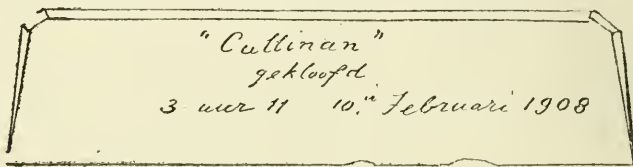 "Cullinan"
gekloofd
3 uur 11 10.n Februari 1908